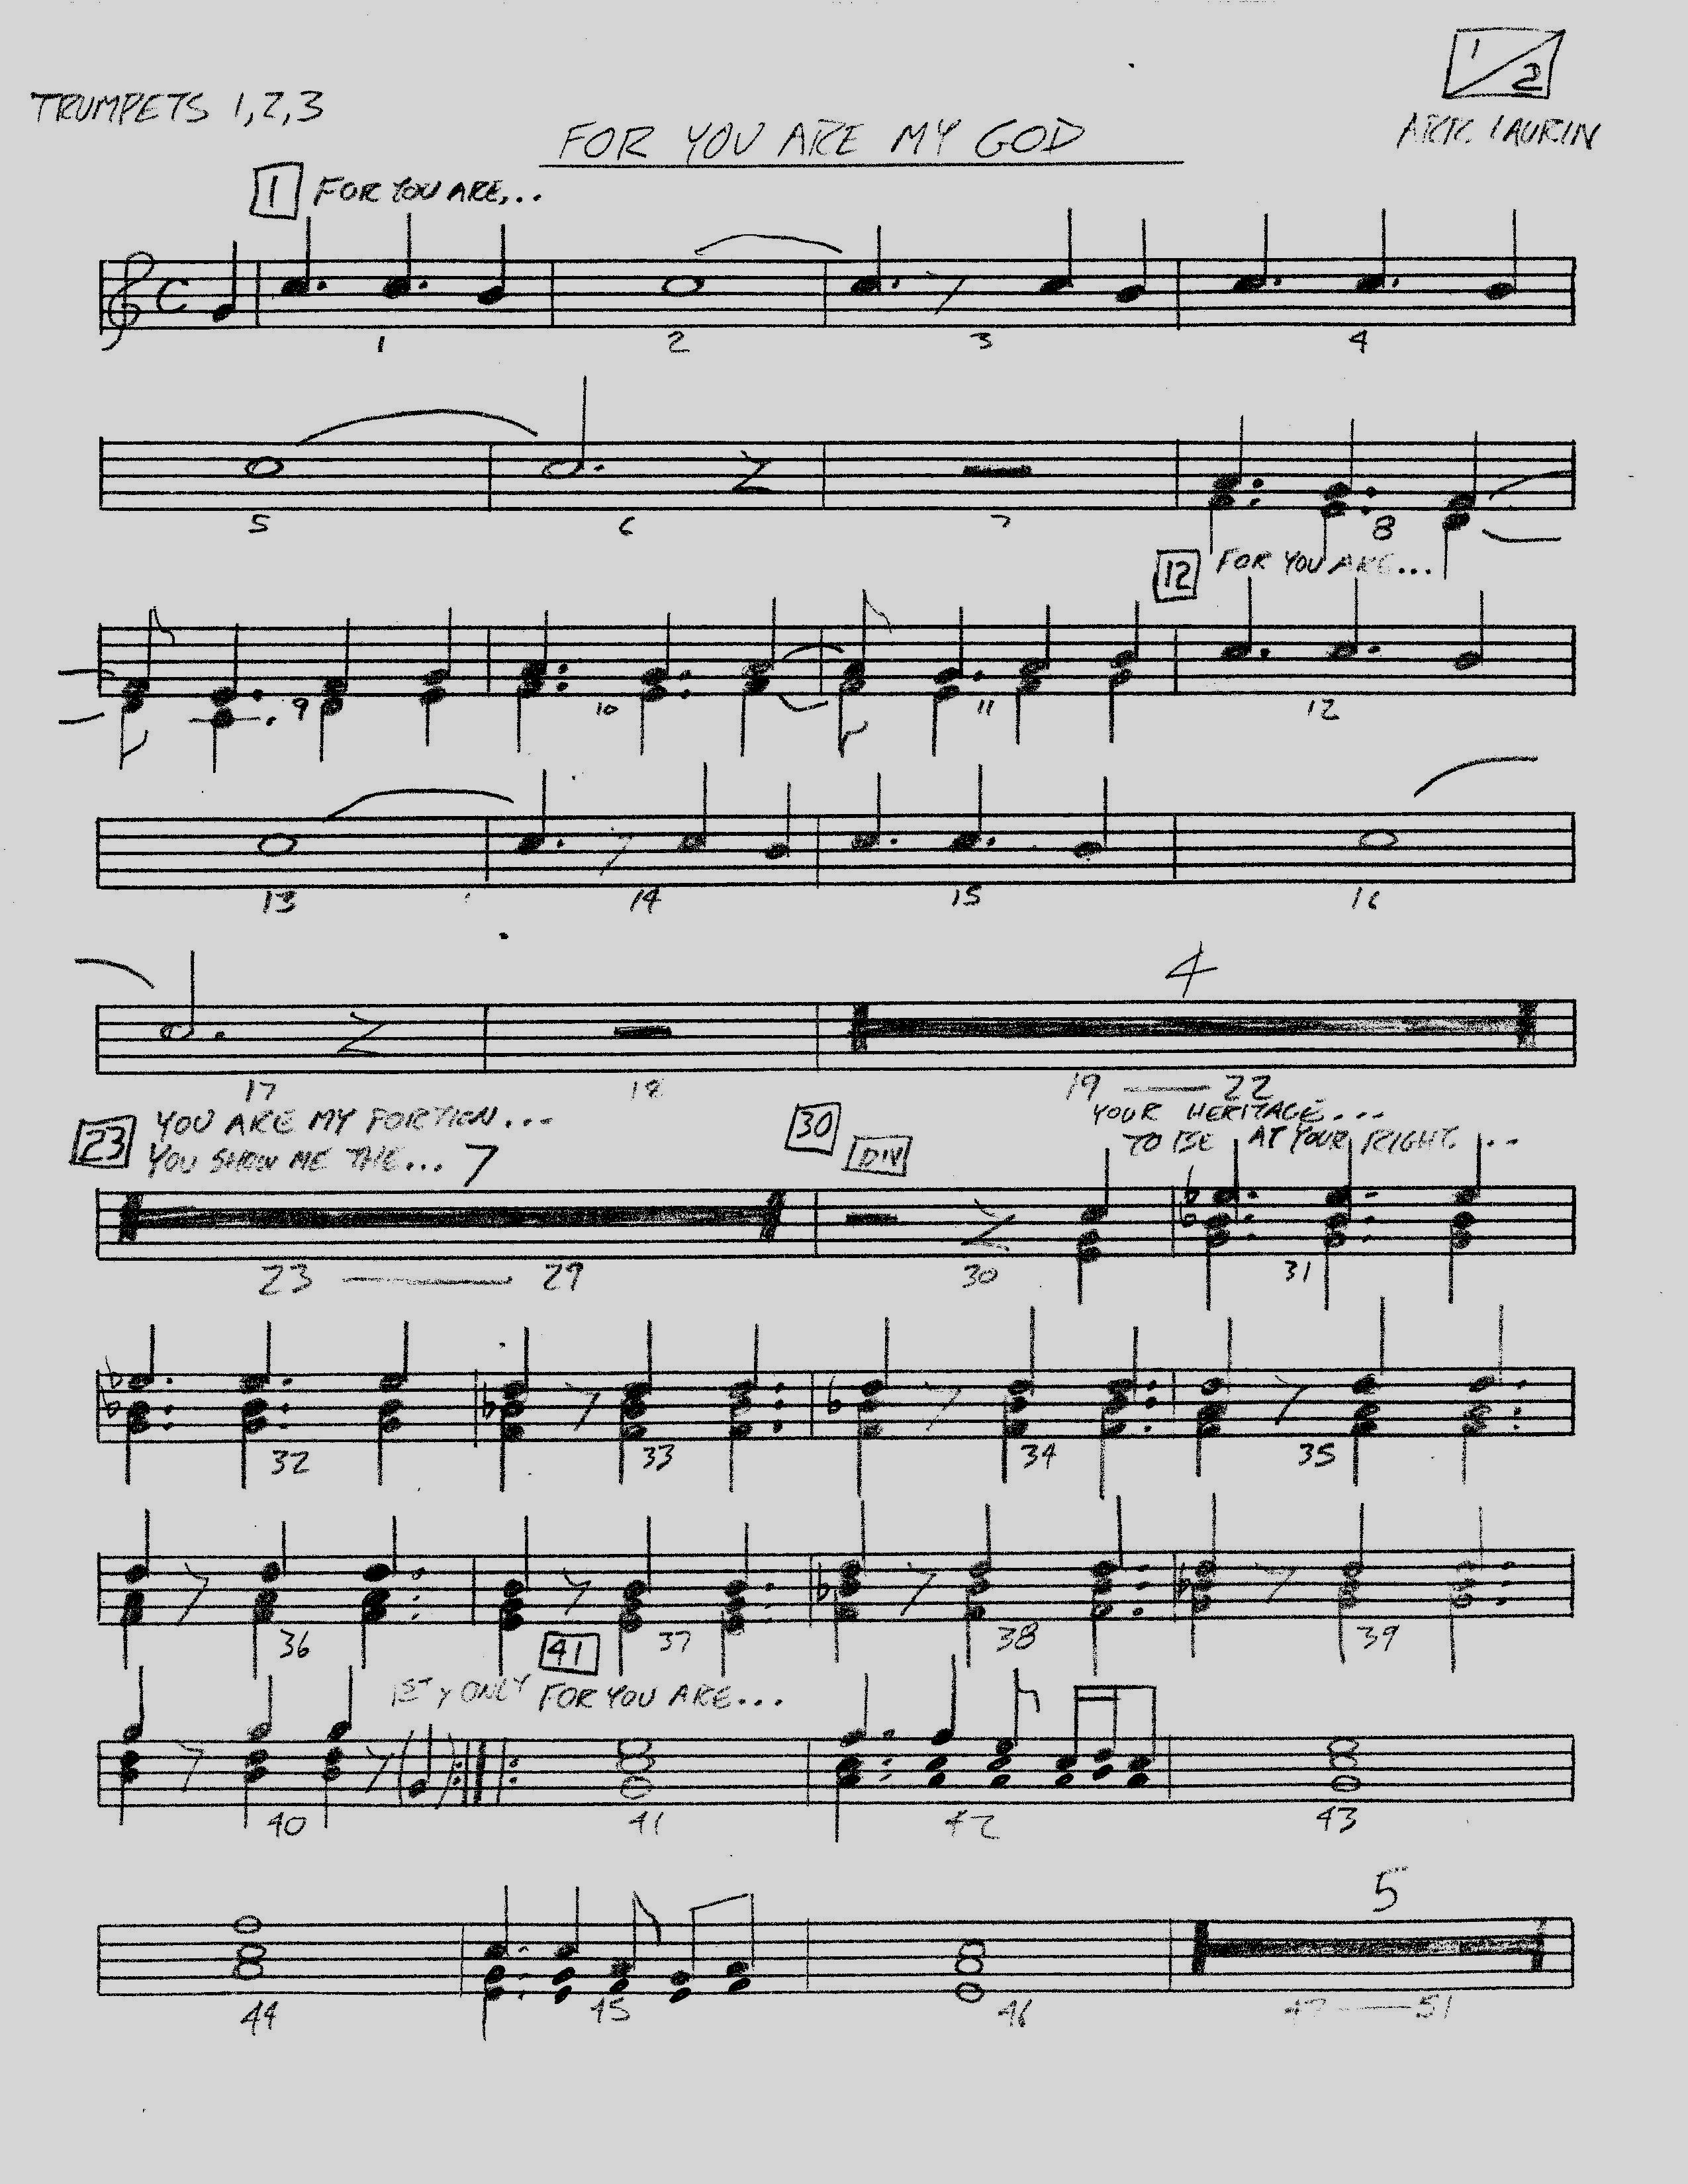 1/2
TRUMPETS 1,2,3
FOR YOU ARE MY GOD
ARR. LAURIN
1 FOR YOU ARE...
1 2 3 4
5 6 7 8
12 FOR YOU ARE...
9 10 11 12
13 14 15 16
4
17 18 19 — 22
23 YOU ARE MY PORTION...
YOU SHOW ME THE... 7
30 DIV
YOUR HERITAGE...
TO BE AT YOUR RIGHT...
23 — 29 30 31
32 33 34 35
36 37 38 39
41
1ST X ONLY FOR YOU ARE...
40 41 42 43
5
44 45 46 47 — 51